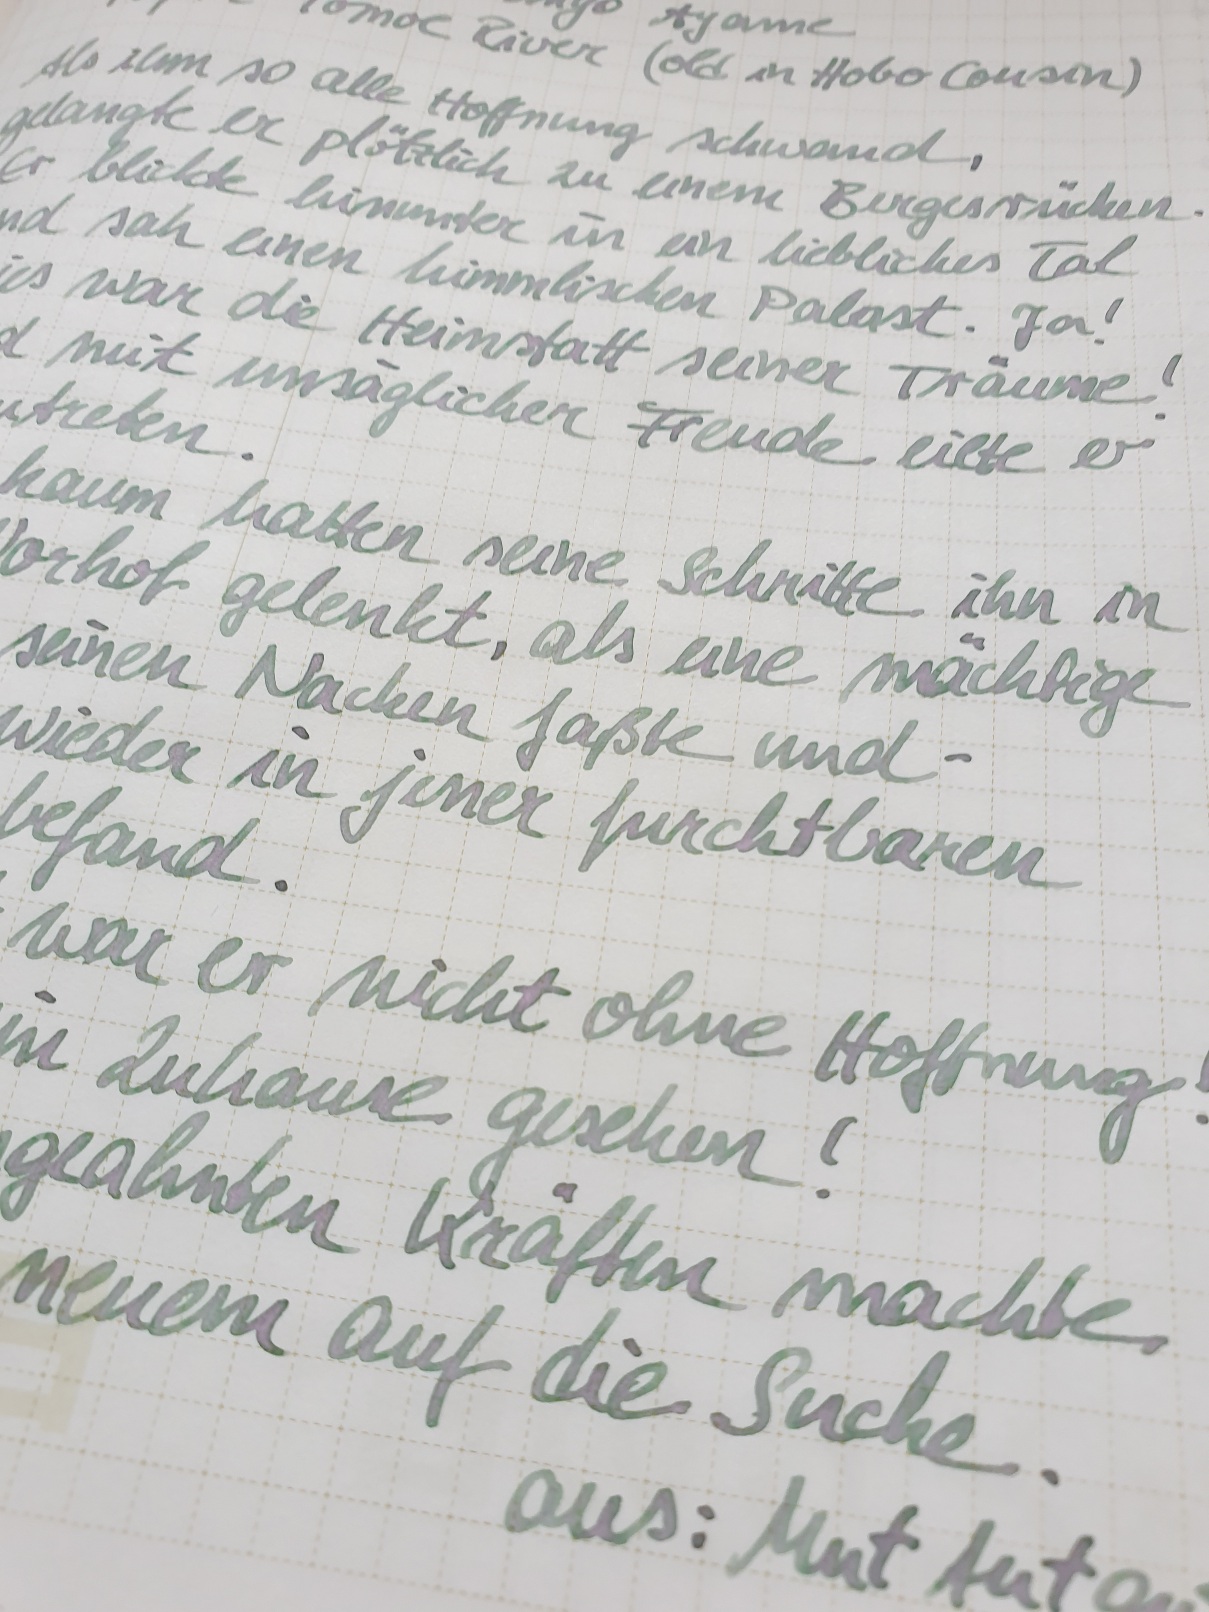 Ayame
Tomoe River (old in Hobo Cousin)
Als ihm so alle Hoffnung schwand,
gelangte er plötzlich zu einem Bergesrücken.
Er blickte hinunter in ein liebliches Tal
und sah einen himmlischen Palast. Ja!
ies war die Heimstatt seiner Träume!
d mit unsäglicher Freude eilte er
utreten.
kaum hatten seine Schritte ihn in
Vorhof gelenkt, als eine mächtige
seinen Nacken faßte und-
wieder in jener furchtbaren
befand.
war er nicht ohne Hoffnung!
in Zuhause gesehen!
ngeahnten Kräften machte
neuem auf die Suche.
aus: Mut tut